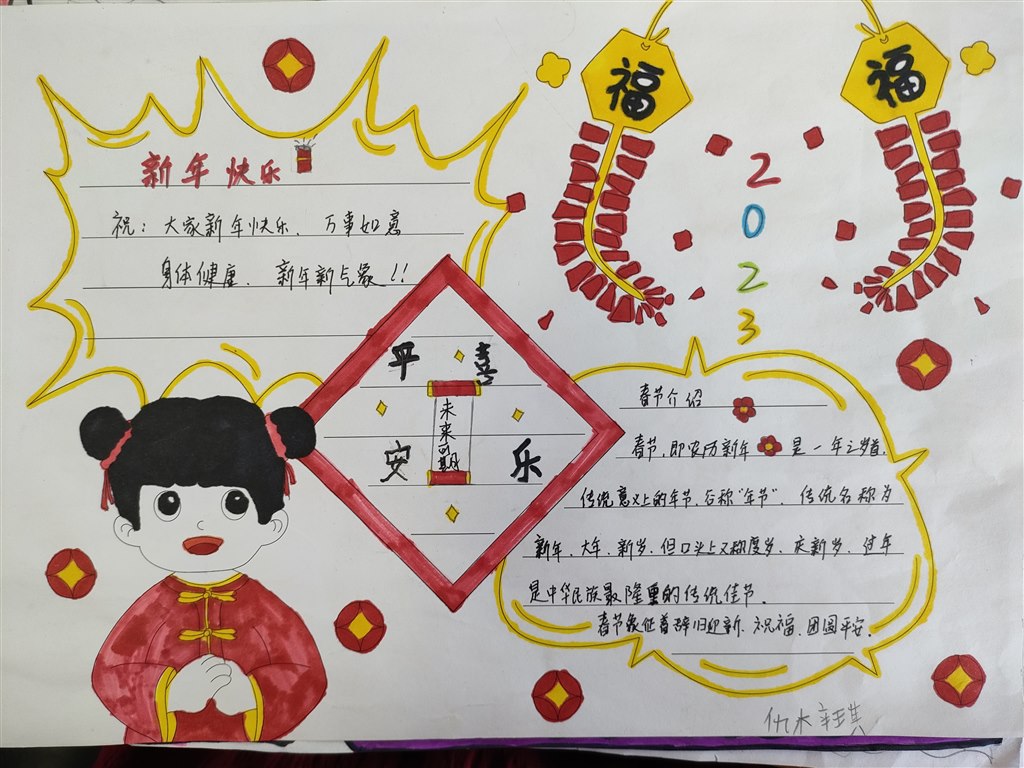 新年快乐
祝：大家新年快乐、万事如意
身体健康、新年新气象!!
福
福
2
0
2
3
平 喜
安 乐
未来可期
春节介绍
春节，即农历新年 是一年之岁首，
传统意义上的年节，俗称"年节"，传统名称为
新年、大年、新岁，但口头上又称度岁、庆新岁、过年
是中华民族最隆重的传统佳节。
春节象征着辞旧迎新、祝福、团圆平安。